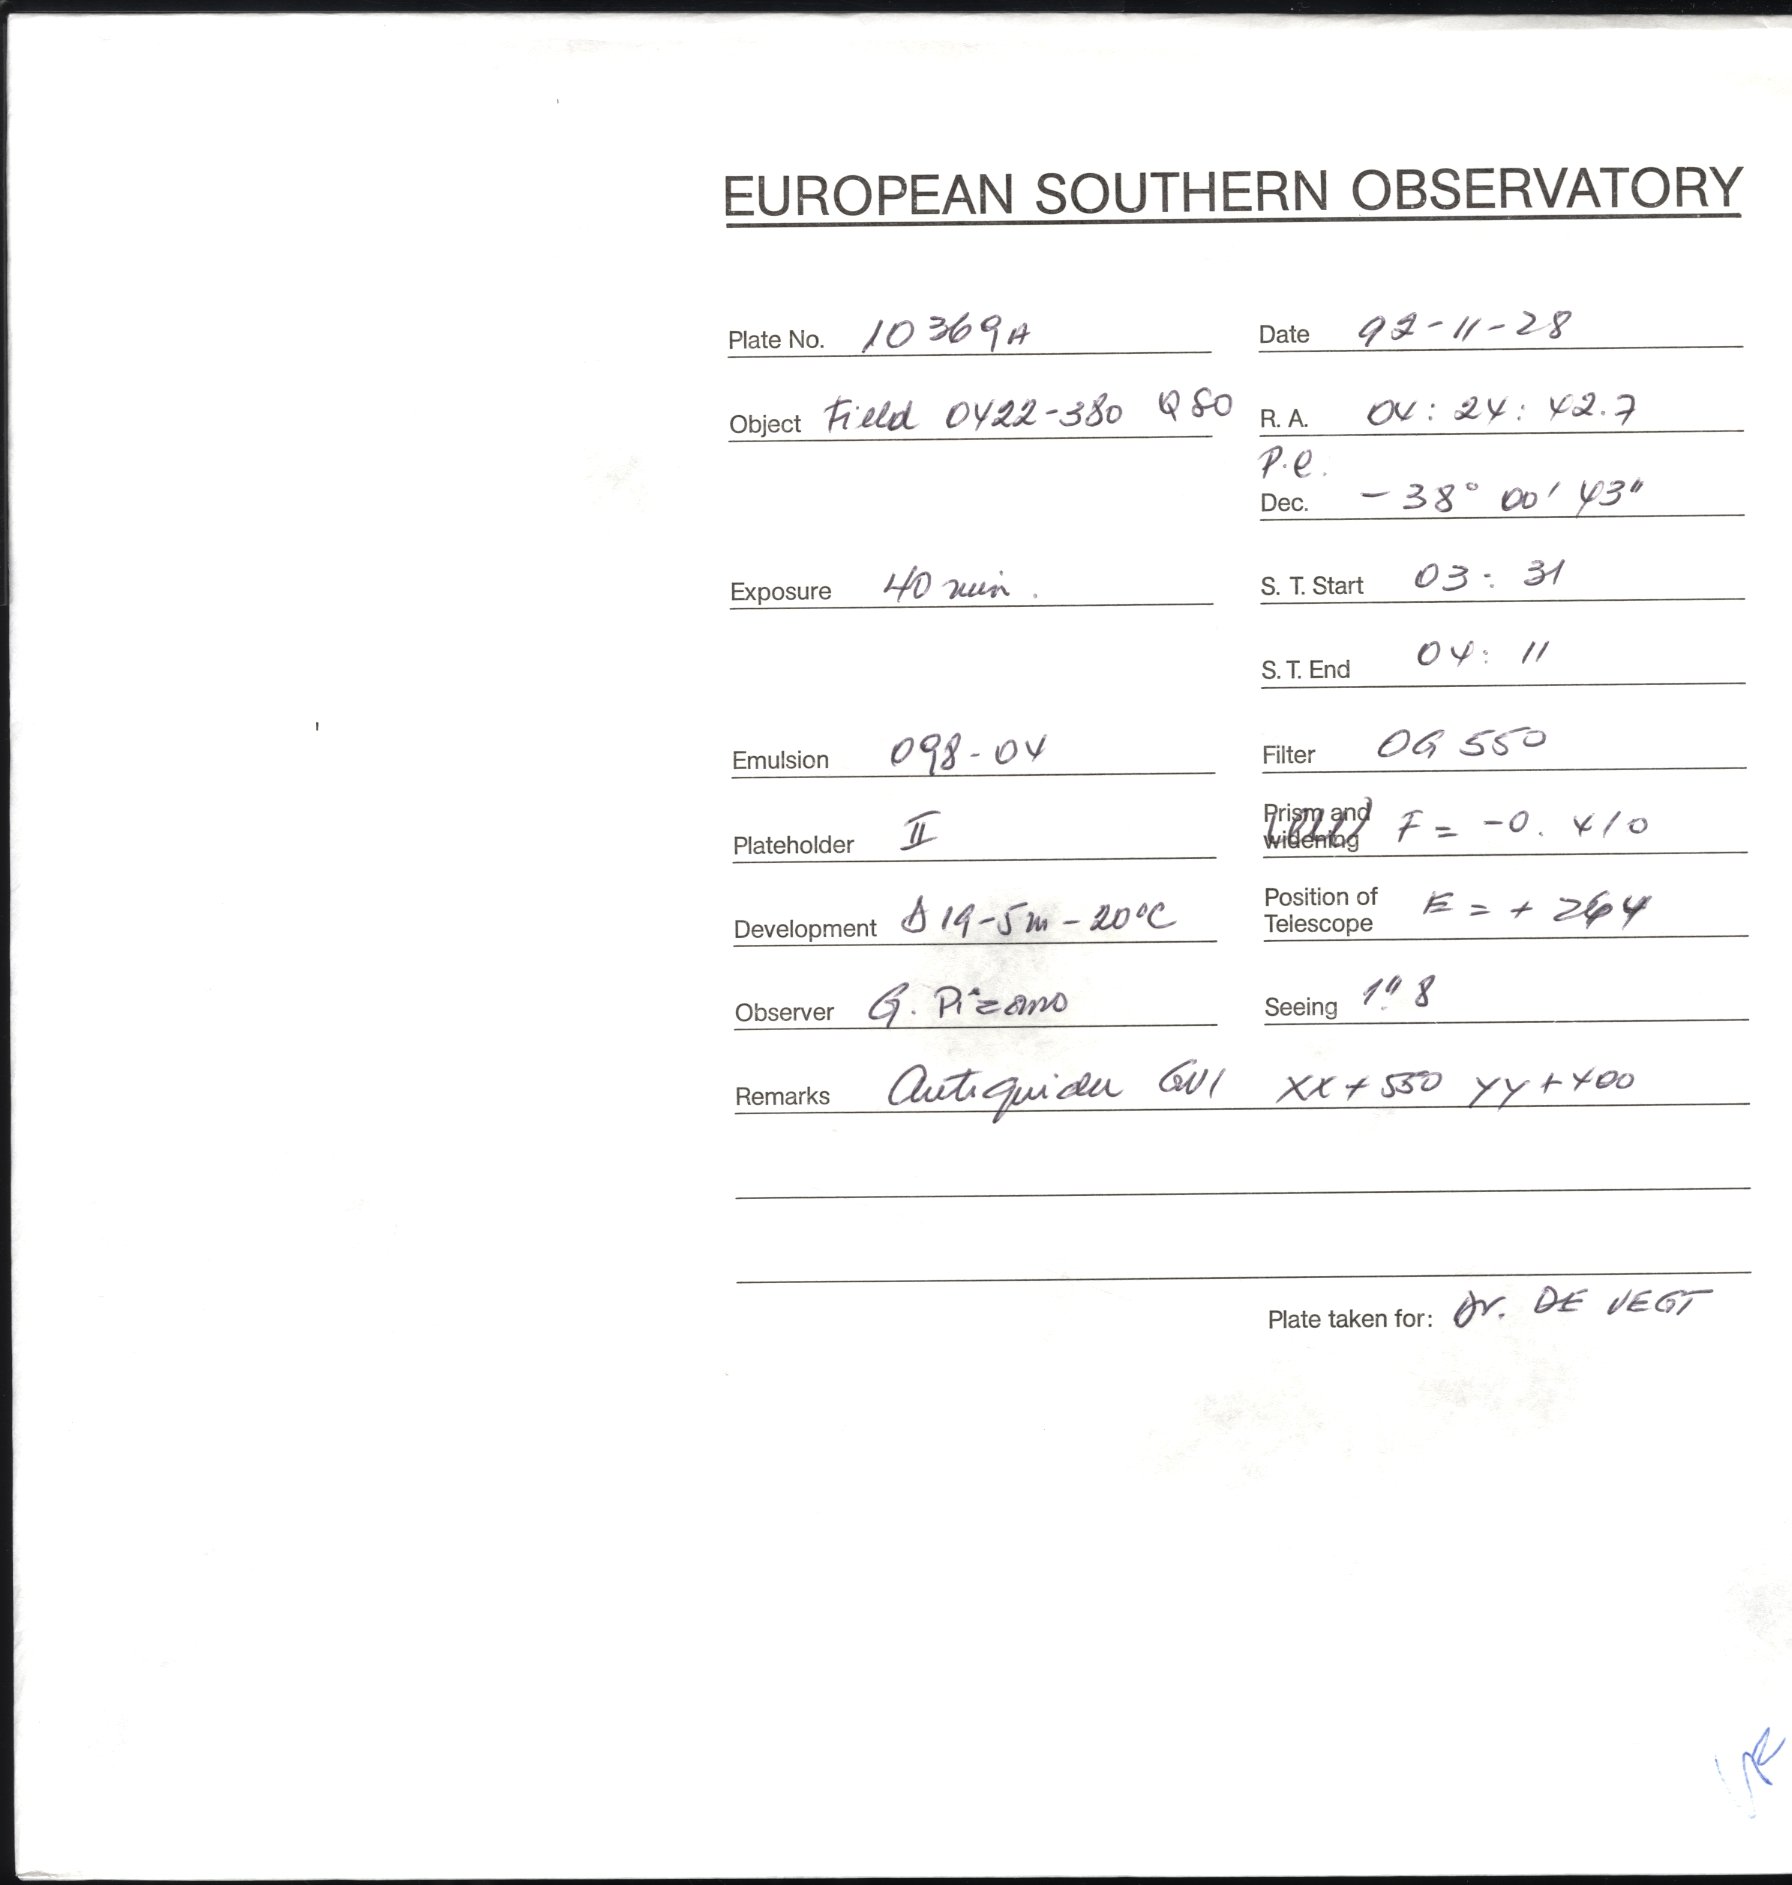 EUROPEAN SOUTHERN OBSERVATORY
Plate No. 10369A Date 92-11-28
Object Field 0422-380 QSO R. A. 04: 24: 42.7
P.e.
Dec. - 38° 00' 43"
Exposure 40 min. S. T. Start 03: 31
S. T. End 04: 11
Emulsion 098-04 Filter OG 550
Plateholder II Prism and widening F = -0. 410
Development D19-5m-20°C Position of Telescope E = + 264
Observer G. Pizano Seeing 1".8
Remarks XX + 550 YY + 400
Plate taken for: Dr. DE VEGT